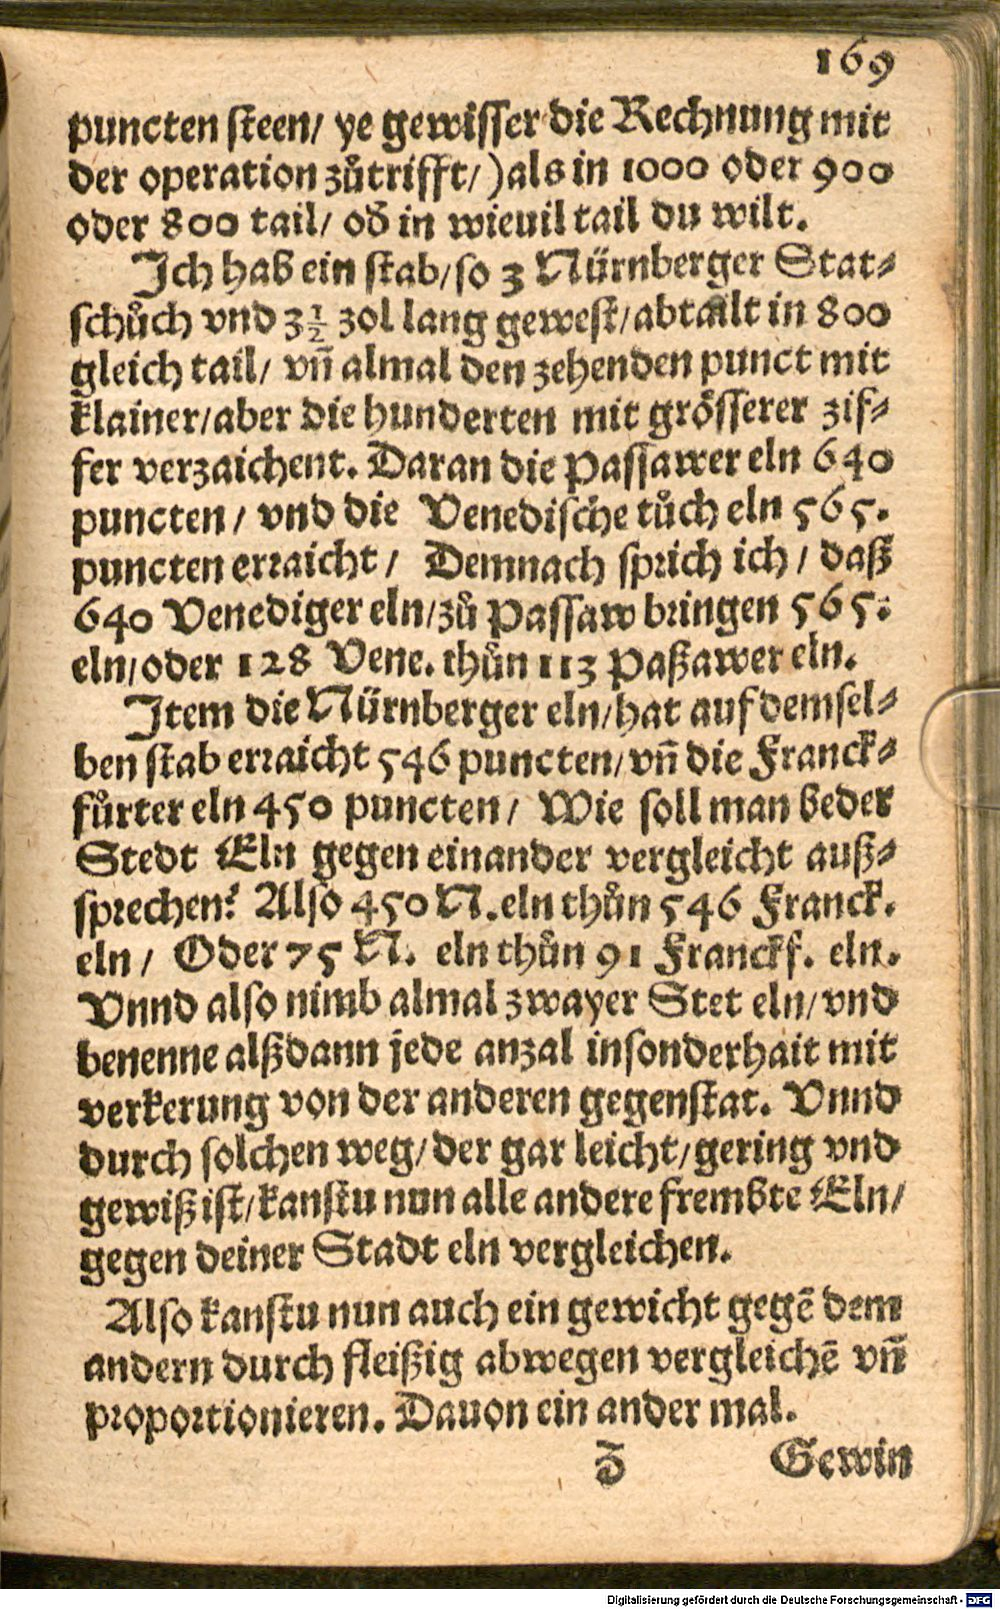 169
puncten steen/ ye gewisser die Rechnung mit
der operation zůtrifft/) als in 1000 oder 900
oder 800 tail/ ob in wieuil tail du wilt.
Ich hab ein stab/ so 3 Nürnberger Stat⸗
schůch vnd 3½ zol lang gewest/ abtailt in 800
gleich tail/ vñ almal den zehenden punct mit
klainer/ aber die hunderten mit grösserer zif⸗
fer verzaichent. Daran die Passawer eln 640
puncten/ vnd die Venedische tůch eln 565.
puncten erraicht/ Demnach sprich ich/ daß
640 Venediger eln/ zů Passaw bringen 565.
eln/ oder 128 Vene. thůn 113 Paßawer eln.
Item die Nürnberger eln/ hat auf demsel⸗
ben stab erraicht 546 puncten/ vñ die Franck⸗
fůrter eln 450 puncten/ Wie soll man beder
Stedt Eln gegen einander vergleicht auß⸗
sprechen? Also 450 N. eln thůn 546 Franck.
eln/ Oder 75 N. eln thůn 91 Franckf. eln.
Vnnd also nimb almal zwayer Stet eln/ vnd
benenne alßdann jede anzal insonderhait mit
verkerung von der anderen gegenstat. Vnnd
durch solchen weg/ der gar leicht/ gering vnd
gewiß ist/ kanstu nun alle andere frembte Eln/
gegen deiner Stadt eln vergleichen.
Also kanstu nun auch ein gewicht gegẽ dem
andern durch fleißig abwegen vergleichẽ vñ
proportionieren. Dauon ein ander mal.
Gewin
Digitalisierung gefördert durch die Deutsche Forschungsgemeinschaft - DFG